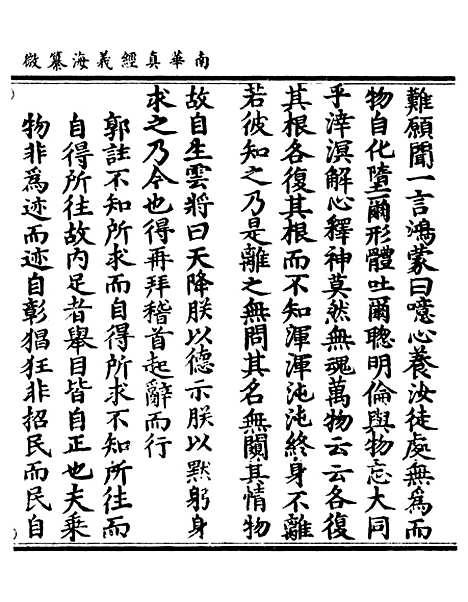 南華真經義海纂微
難願聞一言鴻蒙曰噫心養汝徒處無為而
物自化墮爾形體吐爾聰明倫與物忘大同
乎涬溟解心釋神莫然無魂萬物云云各復
其根各復其根而不知渾渾沌沌終身不離
若彼知之乃是離之無問其名無闚其情物
故自生雲將曰天降朕以德示朕以默躬身
求之乃今也得再拜稽首起辭而行
郭註不知所求而自得所求不知所往而
自得所往故內足者舉目皆自正也夫乗
物非為迹而迹自彰猖狂非招民而民自